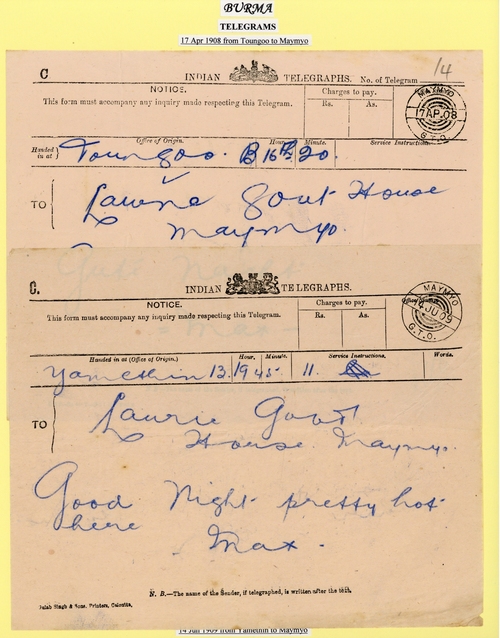 BURMA
TELEGRAMS
17 Apr 1908 from Toungoo to Maymyo
C INDIAN TELEGRAPHS. No. of Telegram 14
NOTICE.
This form must accompany any inquiry made respecting this Telegram.
Charges to pay.
Rs. As.
MAYMYO
17 AP. 08
G.T.O.
Handed in at
Office of Origin. Hour. Minute. Service Instructions.
Toungoo. B 16H 20.
TO
Lawrie Gout House
Maymyo.
C. INDIAN TELEGRAPHS.
NOTICE.
This form must accompany any inquiry made respecting this Telegram.
Charges to pay.
Rs. As.
MAYMYO
JU 09
G.T.O.
Handed in at (Office of Origin). Hour. Minute. Service Instructions. Words.
Yamethin 13. 19 45. 11.
TO
Laurie Govt
House Maymyo.
Good Night pretty hot
here
Max.
N. B.—The name of the Sender, if telegraphed, is written after the text.
Gulab Singh & Sons, Printers, Calcutta.
14 Jun 1909 from Yamethin to Maymyo